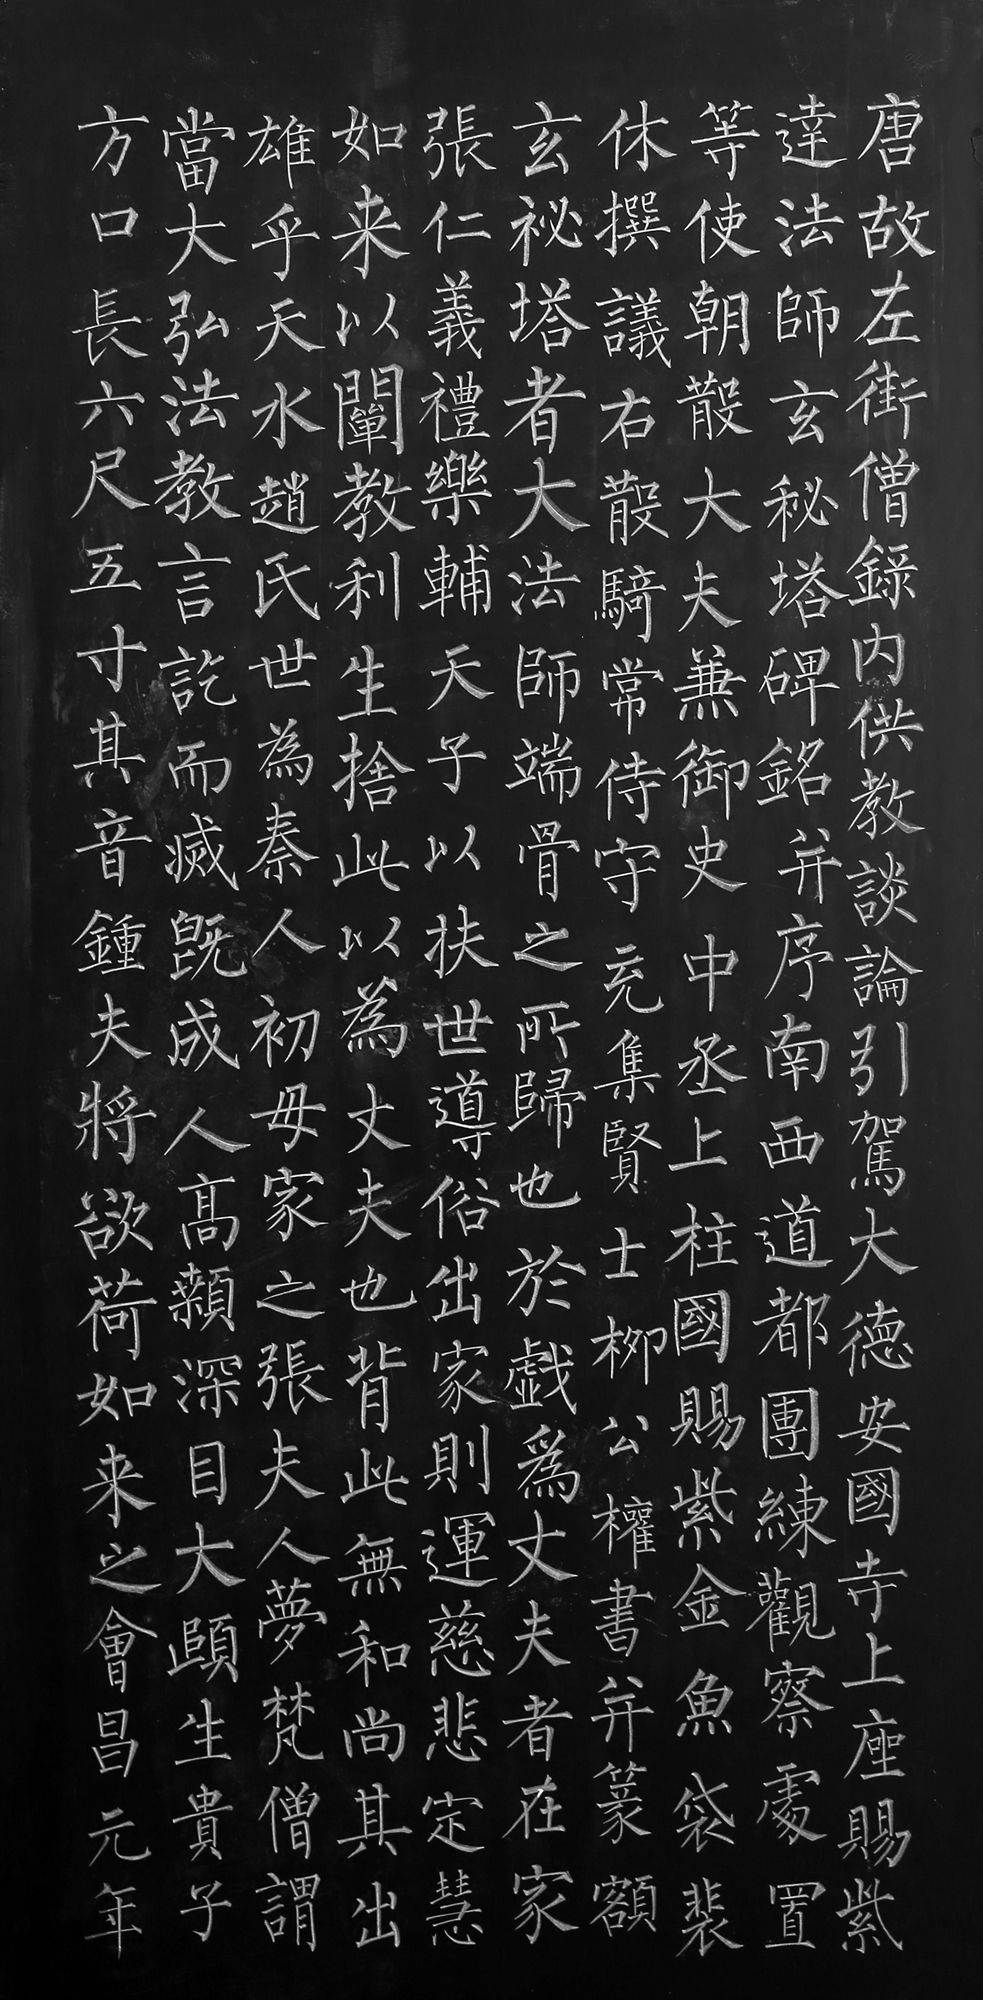 唐故左街僧錄内供教談論引駕大德安國寺上座賜紫
達法師玄秘塔碑銘并序南西道都團練觀察處置
等使朝散大夫兼御史中丞上柱國賜紫金魚袋裴
休撰議右散騎常侍守充集賢士柳公權書并篆額
玄祕塔者大法師端骨之所歸也於戲爲丈夫者在家
張仁義禮樂輔天子以扶世導俗出家則運慈悲定慧
如来以闡教利生捨此以為丈夫也背此無和尚其出
雄乎天水趙氏世為秦人初母家之張夫人夢梵僧謂
當大弘法教言訖而滅既成人高顙深目大頤生貴子
方口長六尺五寸其音鍾夫將欲荷如来之會昌元年